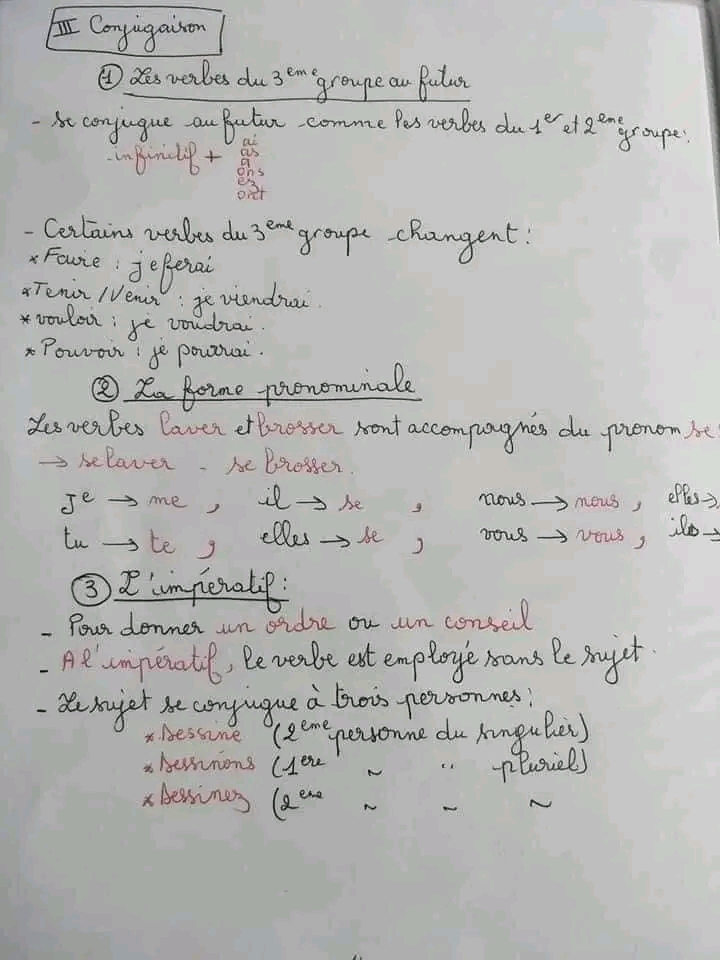 III Conjugaison
① Les verbes du 3eme groupe au futur
- se conjugue au futur comme les verbes du 1er et 2eme groupe:
infinitif + ai
as
a
ons
ez
ont
- Certains verbes du 3eme groupe changent:
* Faire : je ferai
* Tenir / Venir : je viendrai.
* vouloir : je voudrai.
* Pouvoir : je pourrai.
② La forme pronominale
Les verbes laver et brosser sont accompagnés du pronom se
→ se laver - se brosser.
Je → me , il → se , nous → nous , elles →
tu → te , elles → se , vous → vous , ils →
③ L'impératif:
- Pour donner un ordre ou un conseil
- A l'impératif, le verbe est employé sans le sujet.
- Le sujet se conjugue à trois personnes:
* Dessine (2eme personne du singulier)
* Dessinons (1ere ~ " pluriel)
* Dessinez (2eme ~ ~ ~